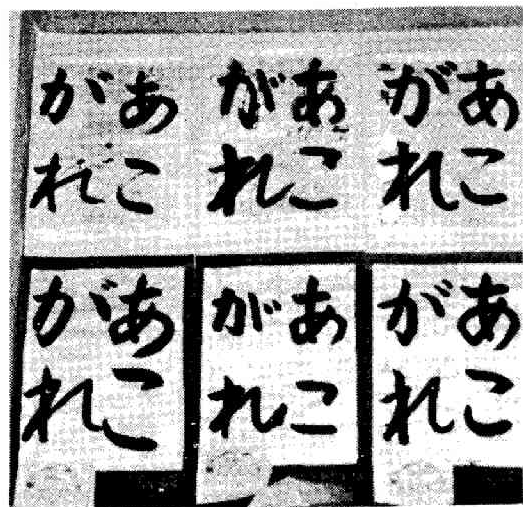 あこ
がれ
あこ
がれ
あこ
がれ
あこ
がれ
あこ
がれ
あこ
がれ